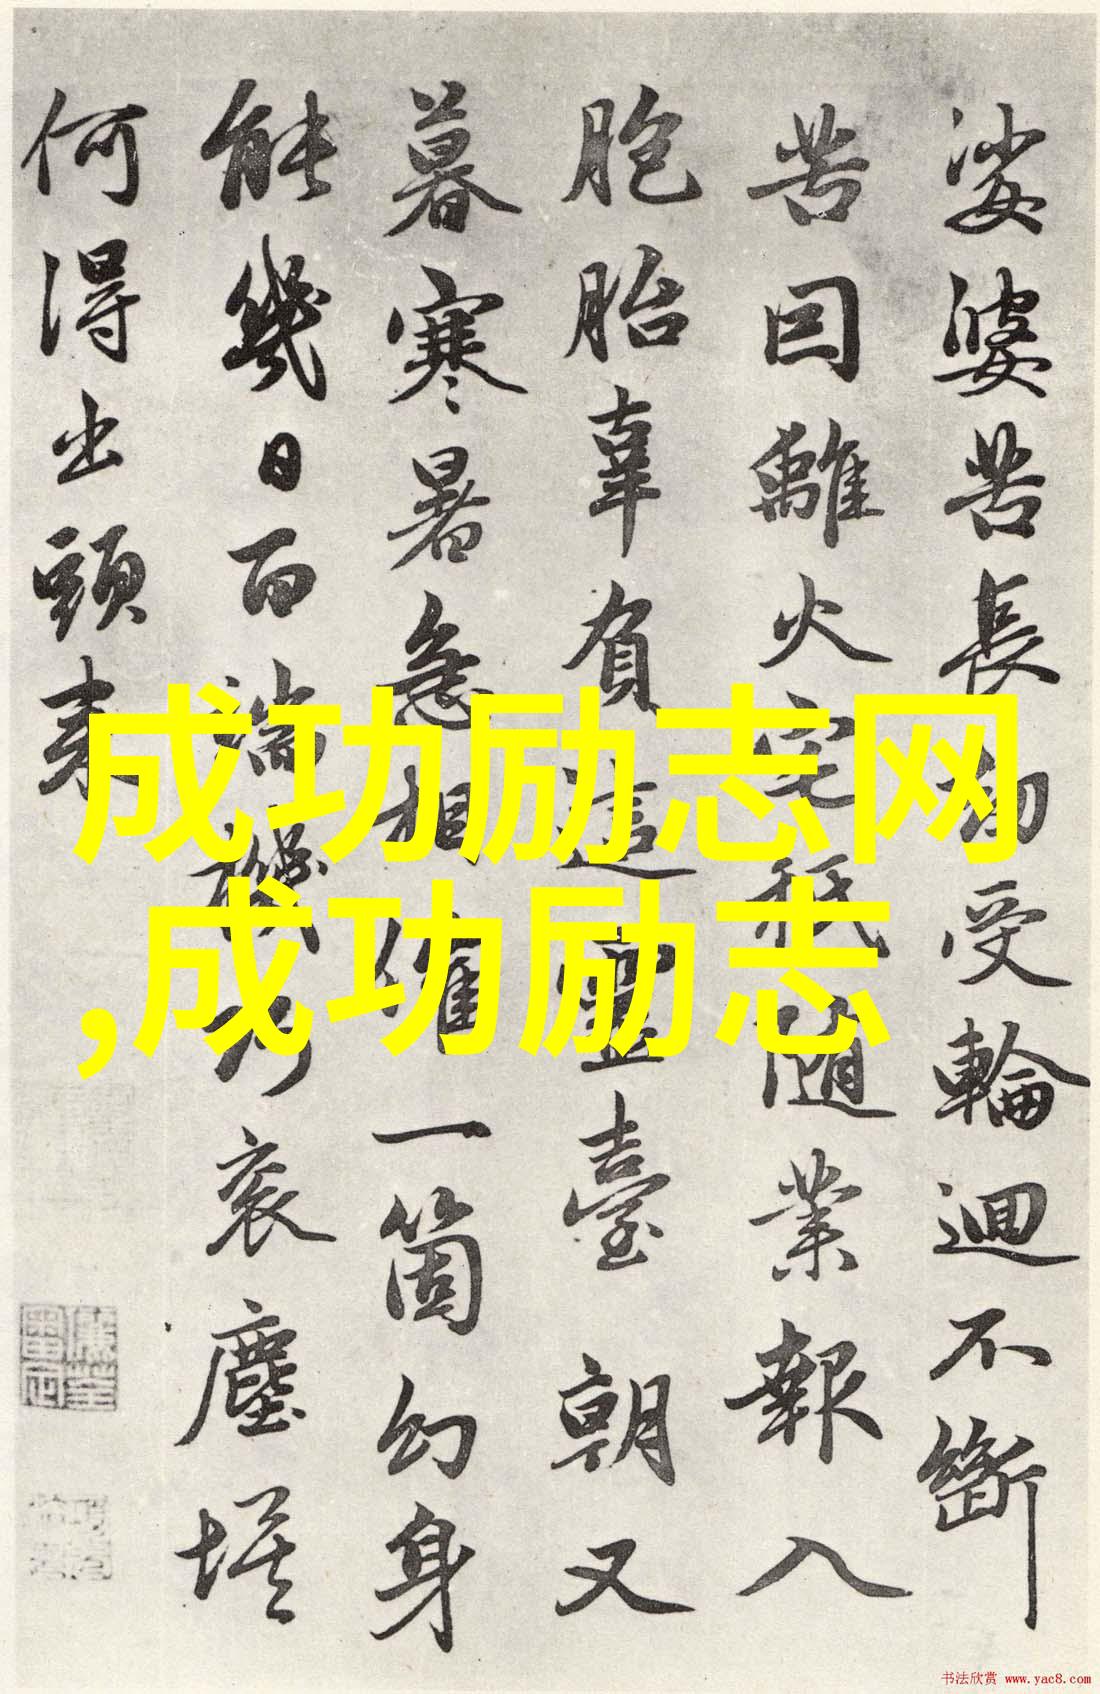 娑婆苦長劫受輪迴不斷
苦囙離火宅秖隨業報入
胞胎辜負這靈臺朝又
暮寒暑急相催一箇幻身
能幾日百端機巧衮塵埃
何得出頭来
成功励志网
,成功励志
书法欣赏 www.yac8.com